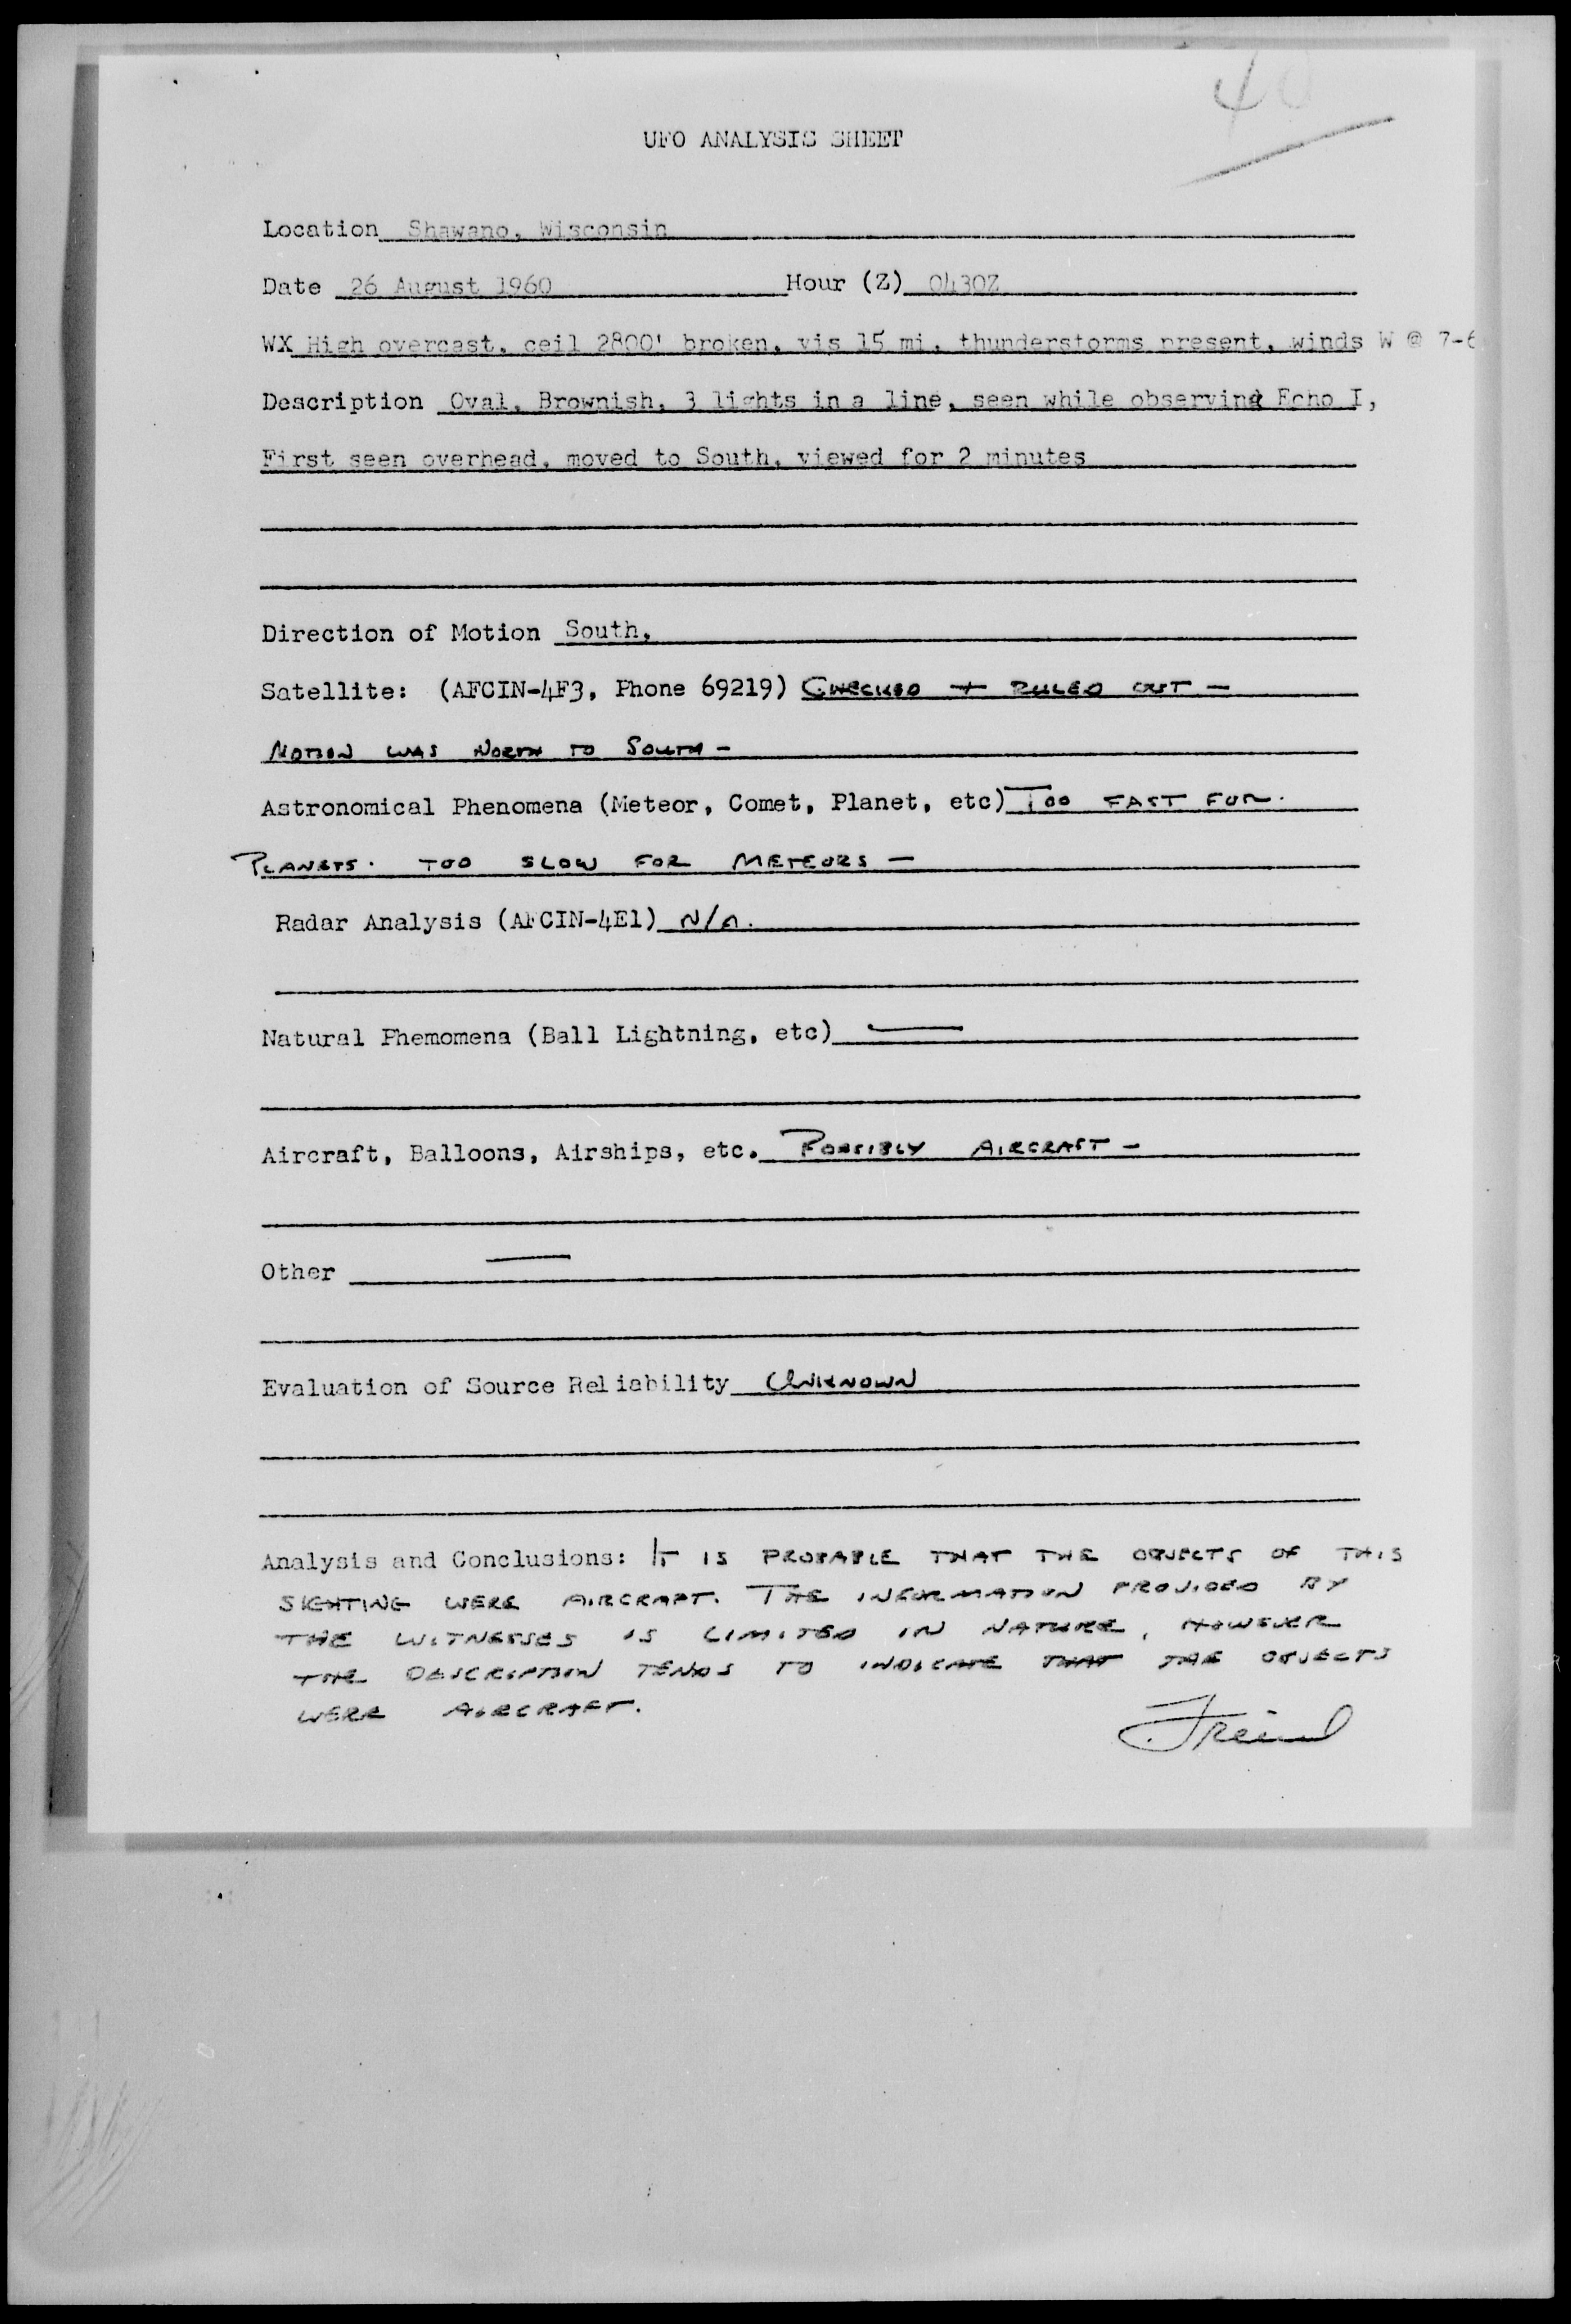 40
UFO ANALYSIS SHEET
Location Shawano, Wisconsin
Date 26 August 1960 Hour (Z) 0430Z
WX High overcast, ceil 2800' broken, vis 15 mi, thunderstorms present, winds W @ 7-6
Description Oval, Brownish, 3 lights in a line, seen while observing Echo I,
First seen overhead, moved to South, viewed for 2 minutes
Direction of Motion South,
Satellite: (AFCIN-4F3, Phone 69219) CHECKED + RULED OUT -
MOTION WAS NORTH TO SOUTH -
Astronomical Phenomena (Meteor, Comet, Planet, etc) TOO FAST FOR
PLANETS. TOO SLOW FOR METEORS -
Radar Analysis (AFCIN-4E1) N/A.
Natural Phemomena (Ball Lightning, etc) —
Aircraft, Balloons, Airships, etc. POSSIBLY AIRCRAFT -
Other —
Evaluation of Source Reliability UNKNOWN
Analysis and Conclusions: IT IS PROBABLE THAT THE OBJECTS OF THIS
SIGHTING WERE AIRCRAFT. THE INFORMATION PROVIDED BY
THE WITNESSES IS LIMITED IN NATURE, HOWEVER
THE DESCRIPTION TENDS TO INDICATE THAT THE OBJECTS
WERE AIRCRAFT.
Freind